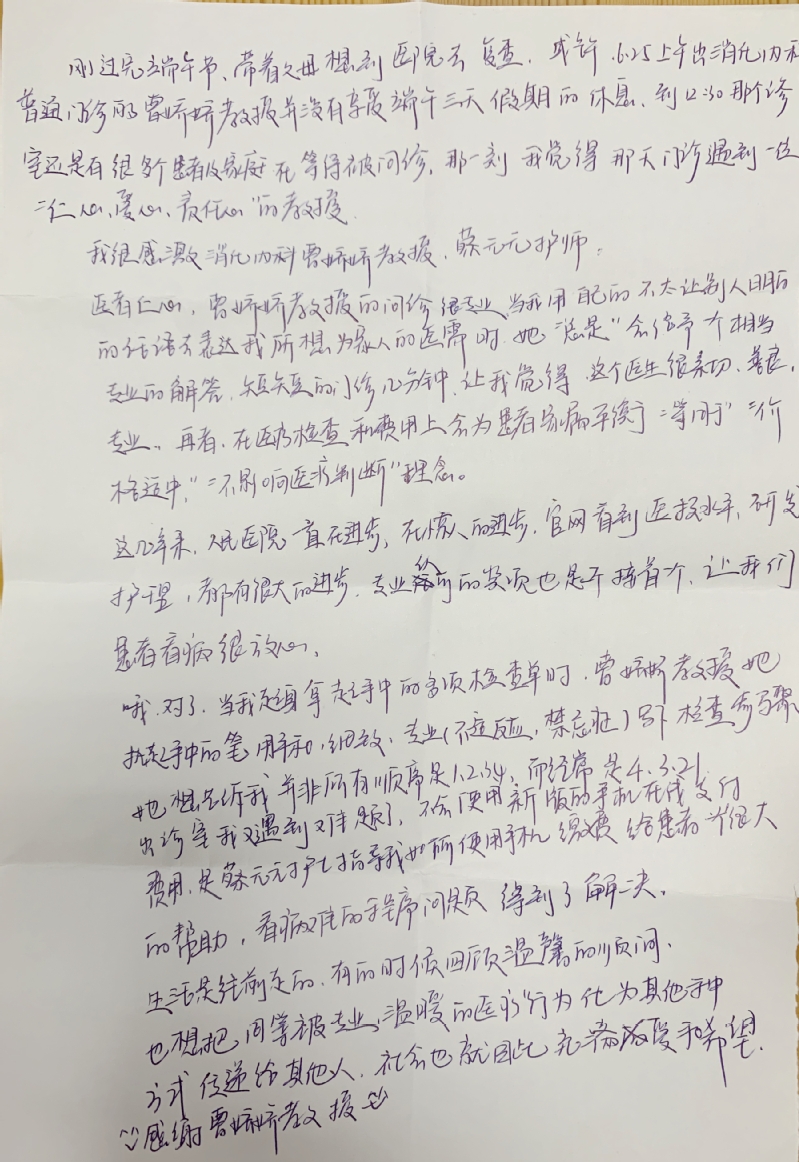 刚过完端午节、带着父母想到医院去复查. 或许 6.25上午出消化内科
普通门诊的曹娇娇教授并没有享受端午三天假期的休息、到12:30那个诊
室还是有很多个患者及家庭在等待被问诊, 那一刻我觉得那天门诊遇到一位
"仁心、爱心、责任心"的教授.
我很感激消化内科曹娇娇教授、蔡元元护师.
医者仁心, 曹娇娇教授的问诊很专业 当我用自己的不太让别人明白
的话语去表达我所想为家人的医需时, 她"总是"会给予一个相当
专业的解答, 短短的门诊几分钟, 让我觉得 这个医生很亲切、善良、
专业.. 再者, 在医疗检查和费用上会为患者家属平衡于 "等同于" "价
格适中" "不影响医疗判断"理念。
这几年来, 人民医院一直在进步, 在惊人的进步, 官网看到医技水平、研发
护理, 都有很大的进步. 专业的奖项也是一个接着一个、让我们
患者看病很放心、
哦. 对了. 当我起身拿起手中的各项检查单时. 曹娇娇教授她
执起手中的笔 用平和、细致、专业(不适反应, 禁忌症) 写下检查步骤
她想告诉我并非所有顺序是1.2.3.4, 而经常是4.3.2.1
出诊室我又遇到难题了, 不会使用新版的手机在线支付
费用, 是蔡元元护士指导我如何使用手机缴费 给患者 很大
的帮助, 看病难的程序问题得到了解决.
生活是往前走的, 有的时候回顾温馨的瞬间.
也想把同等被专业、温暖的医疗行为化为其他种
方式传递给其他人. 社会也就因此充满爱和希望.
感谢曹娇娇教授